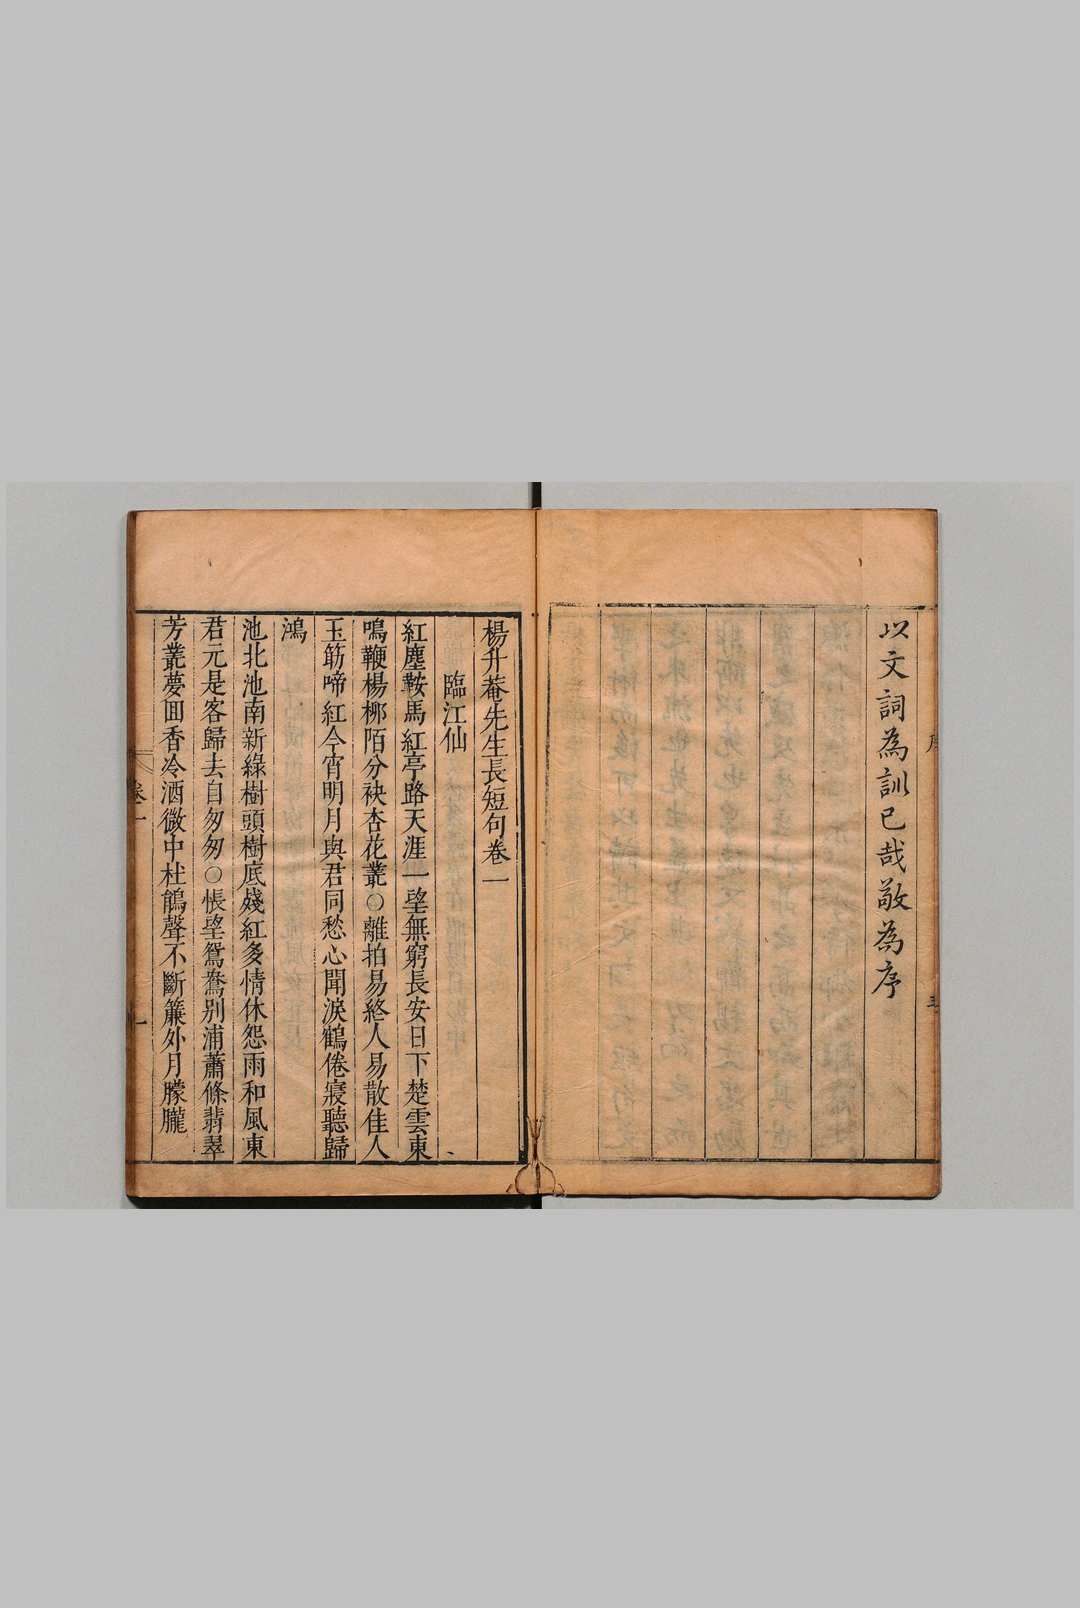 以文詞為訓已哉敬為序
楊升菴先生長短句卷一
臨江仙
紅塵鞍馬紅亭路天涯一望無窮長安日下楚雲東
鳴鞭楊柳陌分袂杏花叢○離拍易終人易散佳人
玉筯啼紅今宵明月與君同愁心聞淚鶴倦寢聽歸
鴻
池北池南新綠樹頭樹底殘紅多情休怨雨和風東
君元是客歸去自匆匆○悵望鴛鴦別浦蕭條翡翠
芳叢夢回香冷酒微中杜鵑聲不斷簾外月朦朧
卷一
一